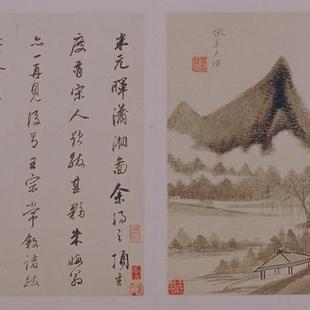 倣米元暉
米元暉瀟湘圖余得之項玄
度有宋人題跋甚夥朱晦翁
亦一再見後有王宗常敘諸跋